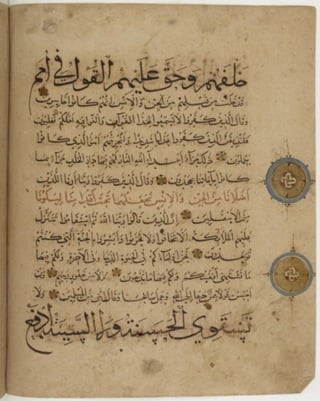 خلفهم وحق عليهم القول في أمم
قد خلت من قبلهم من الجن والإنس إنهم كانوا خاسرين
وقال الذين كفروا لا تسمعوا لهذا القرآن والغوا فيه لعلكم تغلبون
فلنذيقن الذين كفروا عذابا شديدا ولنجزينهم أسوأ الذي كانوا
يعملون ذلك جزاء أعداء الله النار لهم فيها دار الخلد جزاء بما
كانوا بآياتنا يجحدون وقال الذين كفروا ربنا أرنا اللذين
أضلانا من الجن والإنس نجعلهما تحت أقدامنا ليكونا
من الأسفلين إن الذين قالوا ربنا الله ثم استقاموا تتنزل
عليهم الملائكة ألا تخافوا ولا تحزنوا وأبشروا بالجنة التي كنتم
توعدون نحن أولياؤكم في الحياة الدنيا وفي الآخرة ولكم فيها
ما تشتهي أنفسكم ولكم فيها ما تدعون نزلا من غفور رحيم ومن
أحسن قولا ممن دعا إلى الله وعمل صالحا وقال إنني من المسلمين ولا
تستوي الحسنة ولا السيئة ادفع